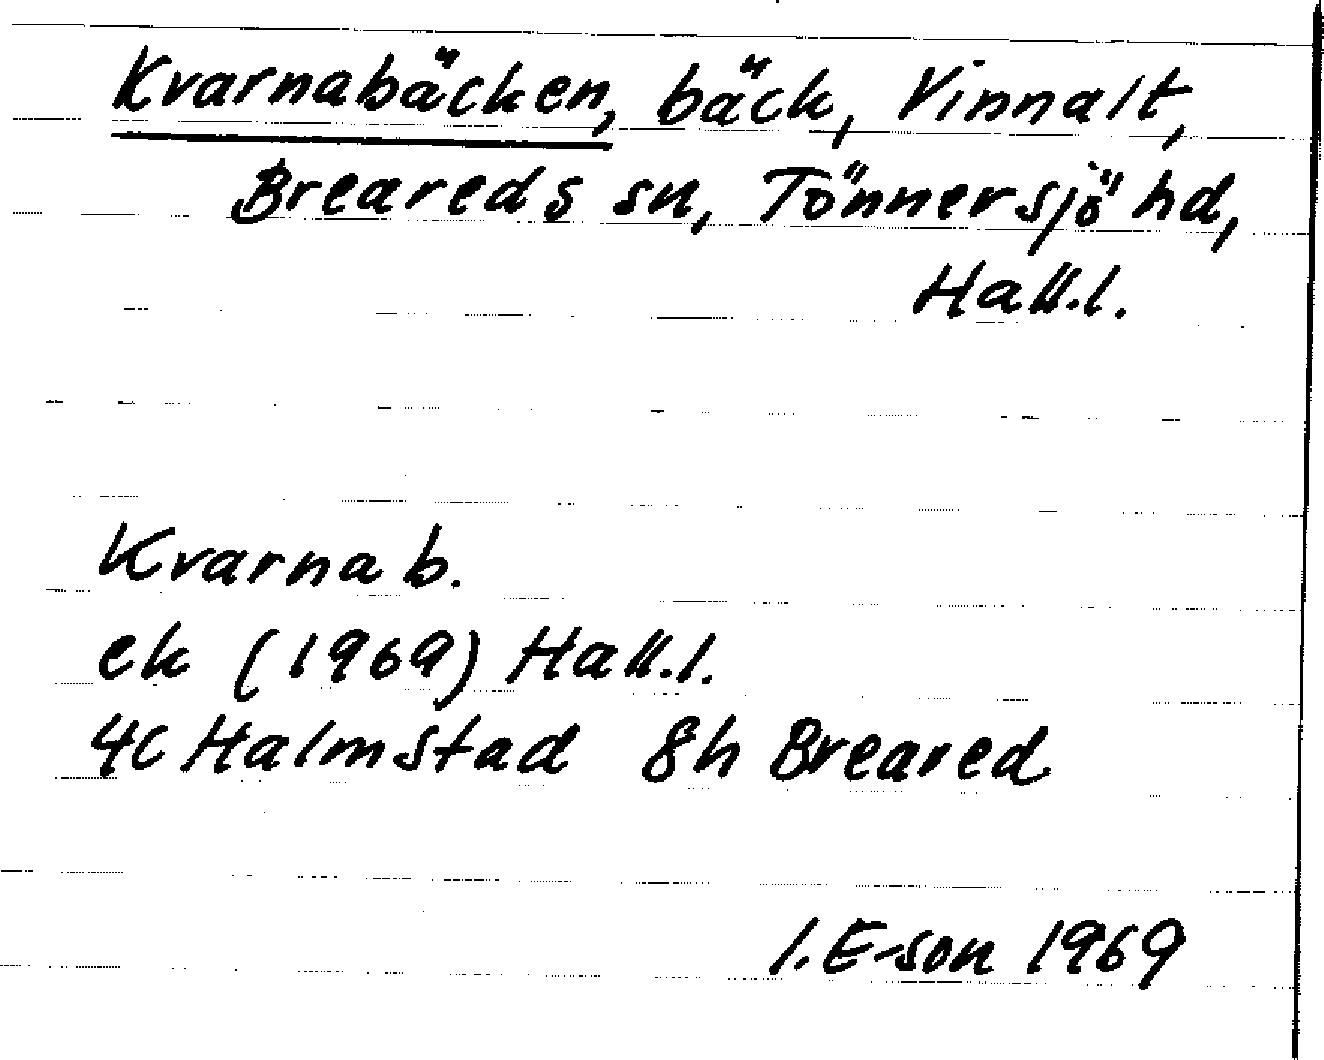 Kvarnabäcken, bäck, Vinnalt,
Breareds sn, Tönnersjö hd,
Hall.l.
Kvarnab.
ek (1969) Hall.l.
4C Halmstad 8h Breared
I. E-son 1969